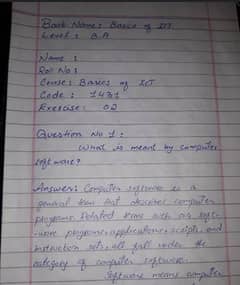 Book Name: Basics of ICT
Level: B.A
Name :
Roll No :
Course: Basics of ICT
Code : 1431
Exercise: 02
Question No 1:
What is meant by computer
software?
Answer: Computer software is a
general term that describes computer
programs. Related terms such as soft-
ware programs, applications, scripts, and
instruction sets, all fall under the
category of computer software.
Software means computer